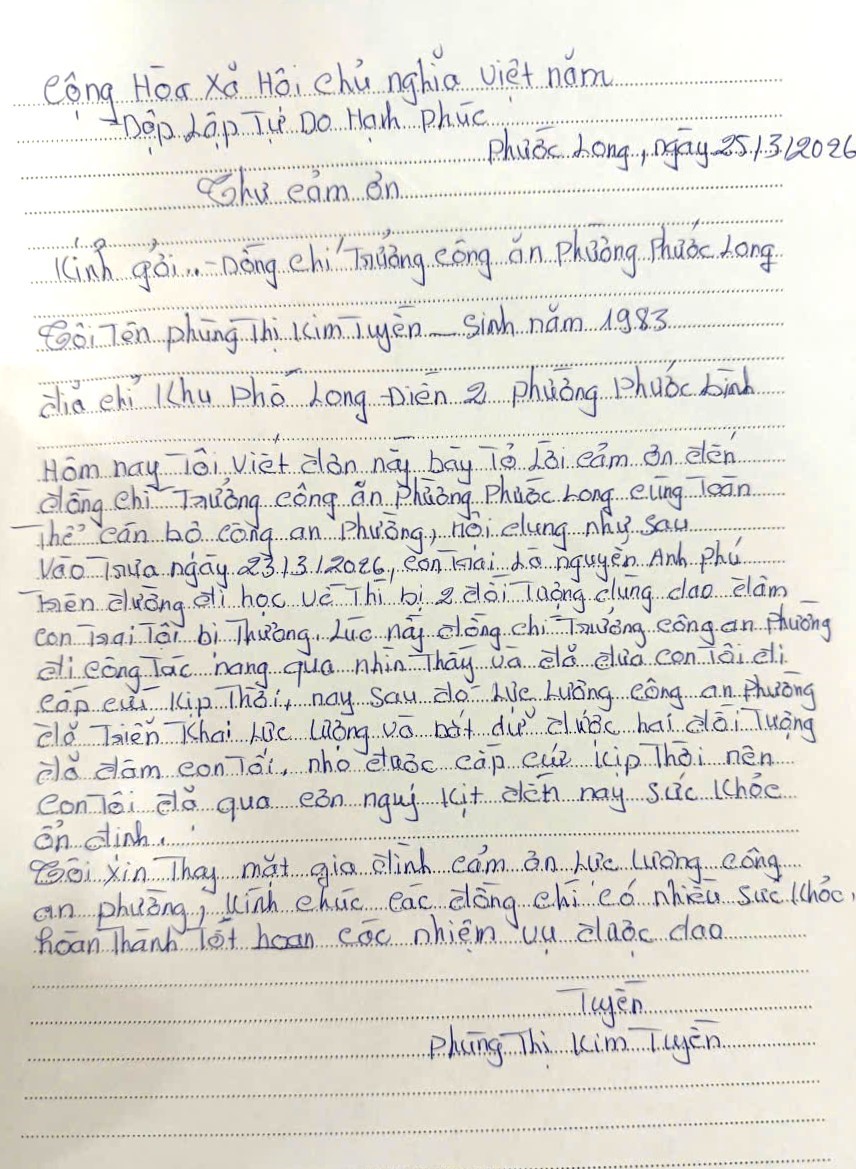 Cộng Hòa Xả Hôi chủ nghĩa việt năm
Độp Lập Tự Do Hạnh phúc
phước Long, ngày 25/3/2026
Thư cảm ơn
Kính gởi..- Đồng chí Trưởng công an phường Phước Long
Tôi Tên phùng Thị Kim Tuyền - Sinh năm 1983
địa chỉ Khu phố Long Điền 2 phường Phước bình
Hôm nay Tôi viết đơn này bày Tỏ Lời cảm ơn đến
đồng chí Trưởng công an phường Phước Long cùng Toàn
Thể cán bộ công an Phường, nôi dung như sau
Vào Trưa ngày 23/3/2026, con trai Là nguyễn Anh phú
trên đường đi học về Thì bị 2 đối Tượng dùng dao đâm
con Trai Tôi bị Thương. Lúc này đồng chí Trưởng công an phường
đi công Tác ngang qua nhìn Thấy và đã đưa con Tôi đi
cấp cứu kịp Thời, nay sau đó Lực Lượng công an phường
đã Triển khai Lực Lượng và bắt dữ được hai đối Tượng
đã đâm con Tôi, nhờ được cấp cứu kịp Thời nên
con Tôi đã qua cơn nguy kịt đến nay sức khỏe
ổn định.
Tôi xin Thay mặt gia đình cảm ơn Lực Lượng công
an phường, kính chúc các đồng chí có nhiều sức khỏe,
hoàn Thành Tốt hoan các nhiệm vụ được dao
Tuyền
Phùng Thị Kim Tuyền